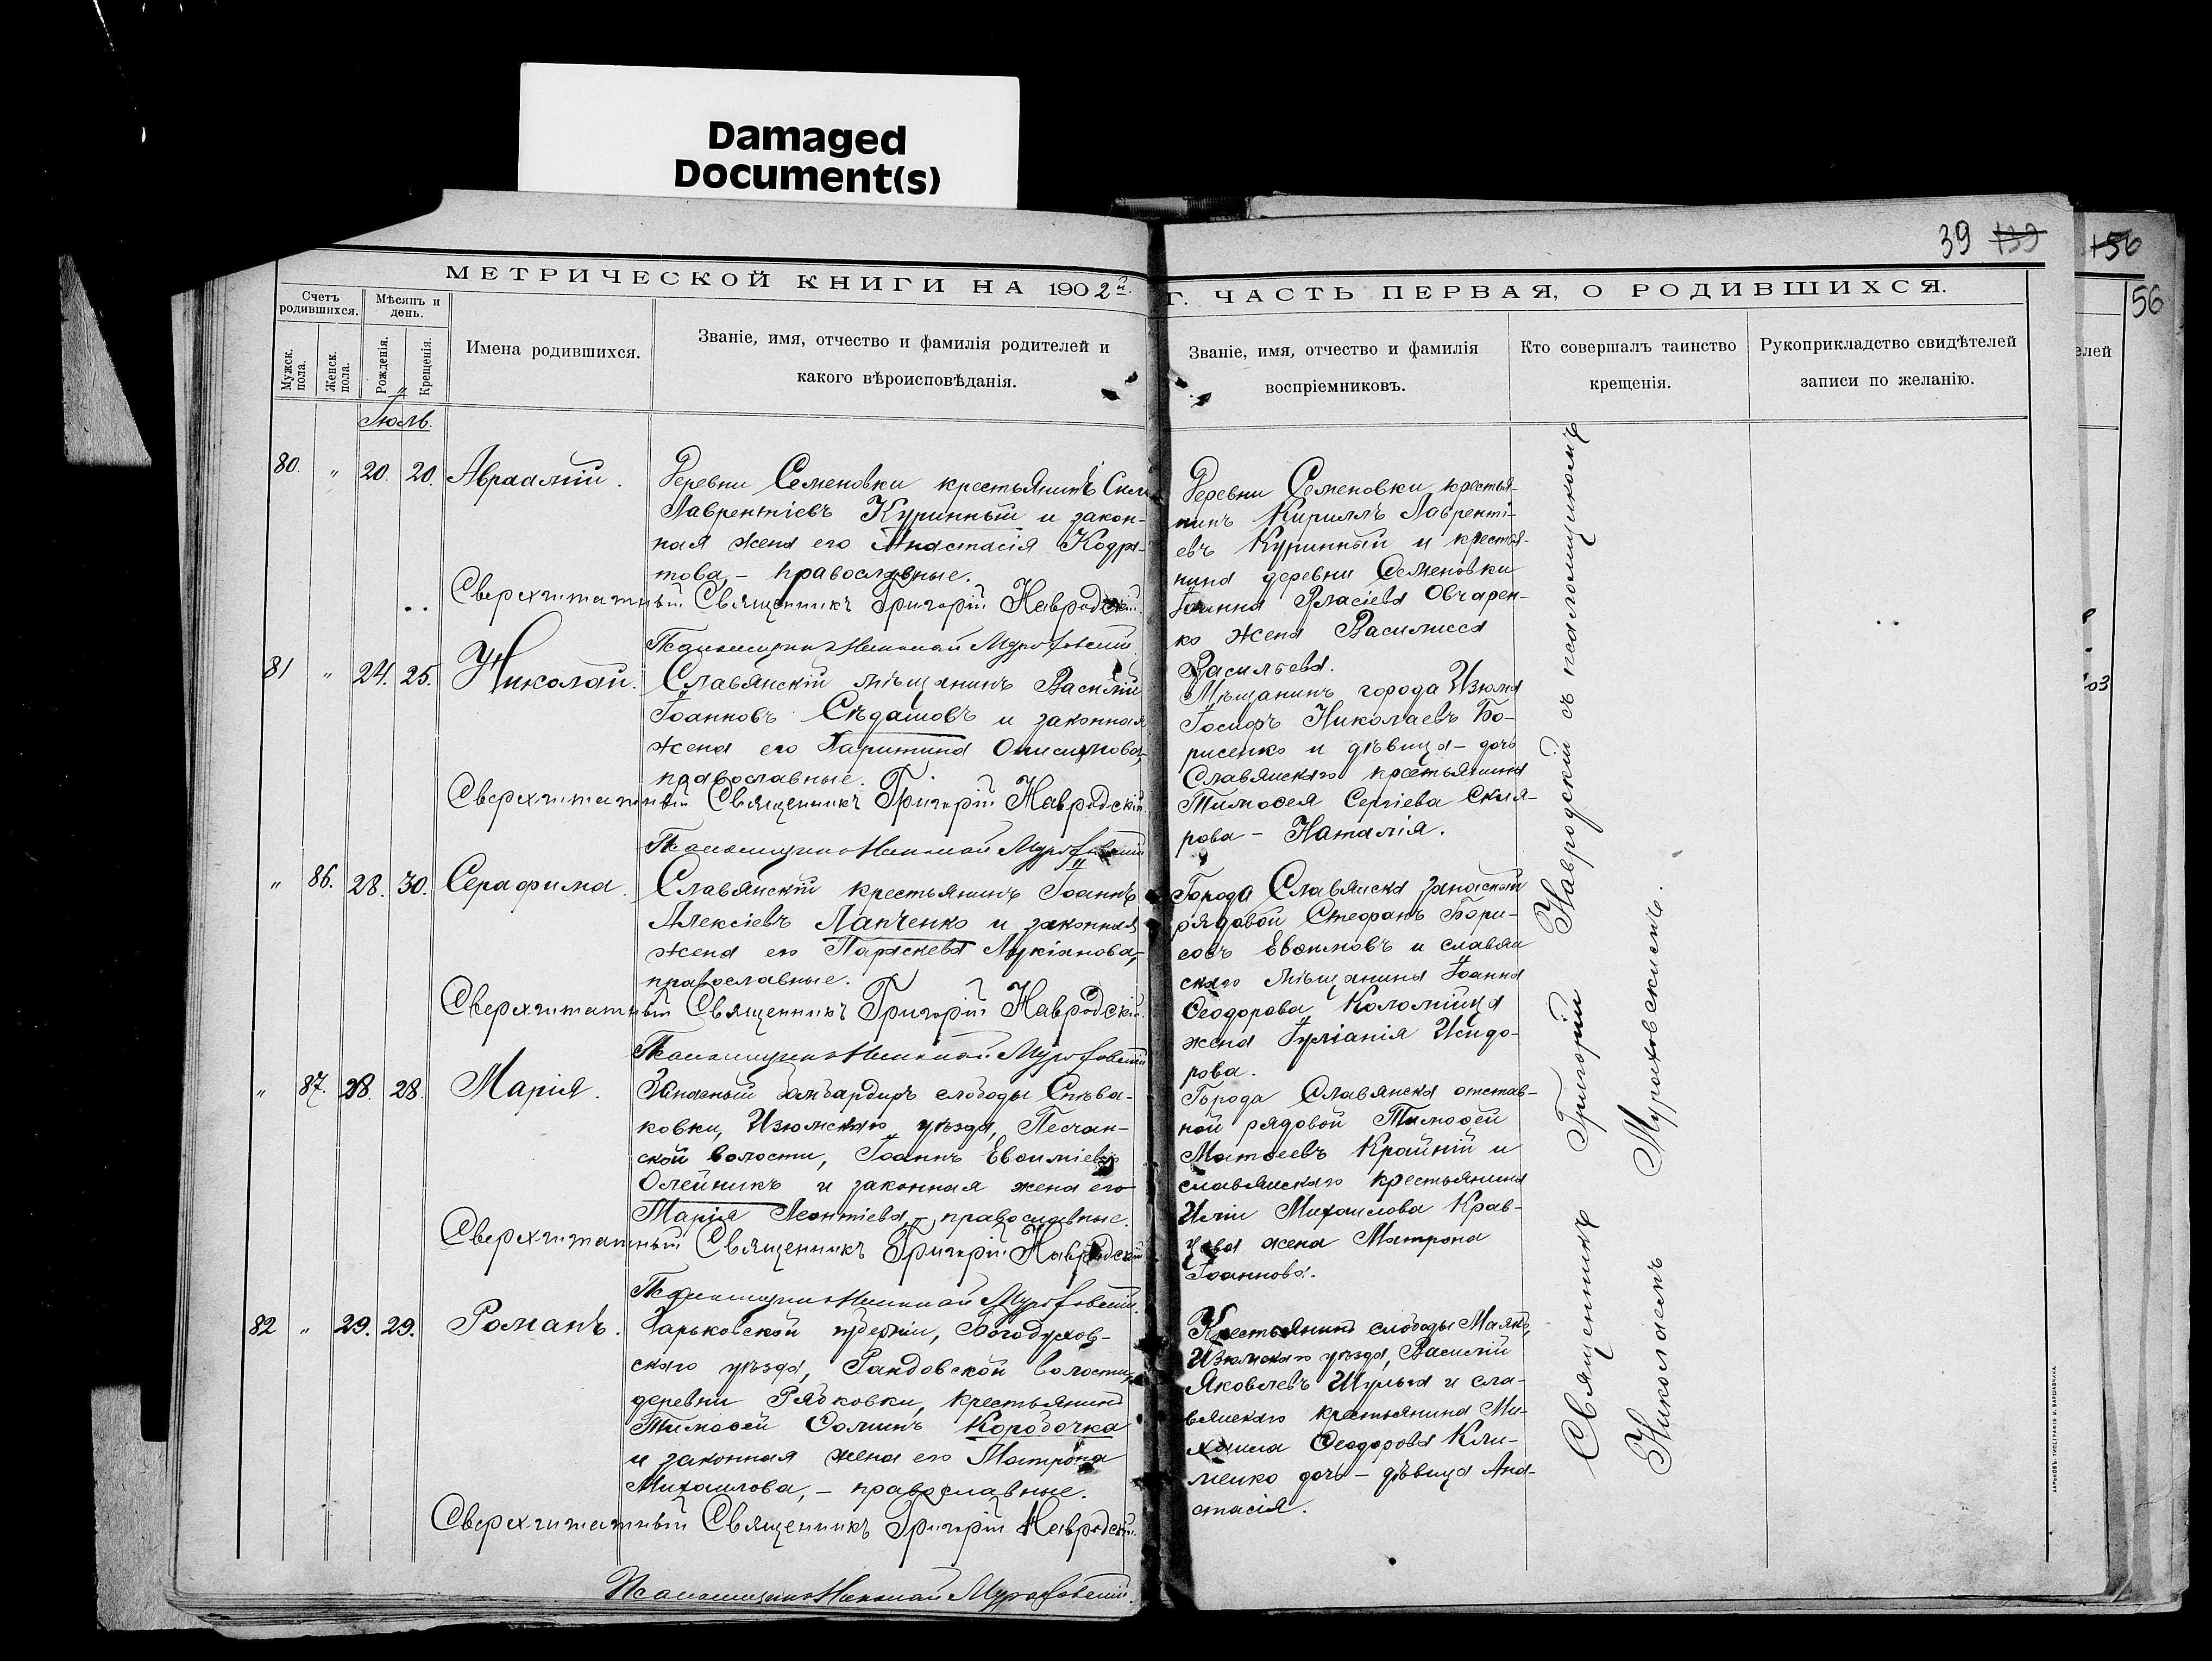 Damaged
Document(s)
39 139
156
56
МЕТРИЧЕСКОЙ КНИГИ НА 1902й
Г. ЧАСТЬ ПЕРВАЯ, О РОДИВШИХСЯ.
Счетъ родившихся.
Мѣсяцъ и день.
Мужск. пола.
Женск. пола.
Рожденія.
Крещенія.
Имена родившихся.
Званіе, имя, отчество и фамилія родителей и
какого вѣроисповѣданія.
Званіе, имя, отчество и фамилія
воспріемниковъ.
Кто совершалъ таинство
крещенія.
Рукоприкладство свидѣтелей
записи по желанію.
елей
Іюль.
80. " 20. 20. Авраамій.
Деревни Семеновки крестьянинъ
Лаврентіевъ Куринный и закон-
ная жена его Анастасія Кодра-
това, – православные.
Сверхштатный Священникъ Григорій Навродскій
Псаломщикъ Николай Мураховскій
Деревни Семеновки крестья-
нинъ Кириллъ Лавренті-
евъ Куринный и крестья-
нина деревни Семеновки
Іоанна Власіева Овчарен-
ко жена Василисса
Васильева.
81 " 24. 25. Николай.
Славянскій мѣщанинъ Василій
Іоанновъ Сѣдашовъ и законная
жена его Харитина Онисимова,
православные.
Сверхштатный Священникъ Григорій Навродскій
Псаломщикъ Николай Мураховскій
Мѣщанинъ города Изюма
Іосифъ Николаевъ Бо-
рисенко и дѣвица – дочь
Славянскаго крестьянина
Тимоѳея Сергіева Скля-
рова – Наталія.
" 86. 28. 30. Серафима.
Славянскій крестьянинъ Іоаннъ
Алексіевъ Лапченко и законная
жена его Параскева Лукіанова,
православные.
Сверхштатный Священникъ Григорій Навродскій
Псаломщикъ Николай Мураховскій
Города Славянска запасной
рядовой Стефанъ Бори-
совъ Евѳимовъ и славян
скаго мѣщанина Іоанна
Ѳеодорова Коломійца
жена Іуліанія Исидо-
рова.
" 87. 28. 28. Марія.
Запасный бомбардиръ слободы Спѣва-
ковки, Изюмскаго уѣзда, Песчан-
ской волости, Іоаннъ Евѳиміевъ
Олейникъ и законная жена его
Марія Леонтіева, – православные.
Сверхштатный Священникъ Григорій Навродскій
Псаломщикъ Николай Мураховскій
Города Славянска отстав-
ной рядовой Тимоѳей
Матѳеевъ Крайній и
славянскаго крестьянина
Иліи Михаилова Крав-
цова жена Матрона
Іоаннова.
82 " 29. 29. Романъ.
Харьковской губерніи, Богодухов-
скаго уѣзда, волости,
деревни Рябковки, крестьянинъ
Тимоѳей Ѳоминъ Коробочка
и законная жена его Матрона
Михаилова, – православные.
Сверхштатный Священникъ Григорій Навродскій
Псаломщикъ Николай Мураховскій
Крестьянинъ слободы Маякъ,
Изюмскаго уѣзда, Василій
Яковлевъ Шульга и сла-
вянскаго крестьянина Ми-
хаила Ѳеодорова Кли-
менко дочь – дѣвица Ана-
стасія.
Священникъ Григорій Навродскій съ псаломщикомъ
Николаемъ Мураховскимъ.